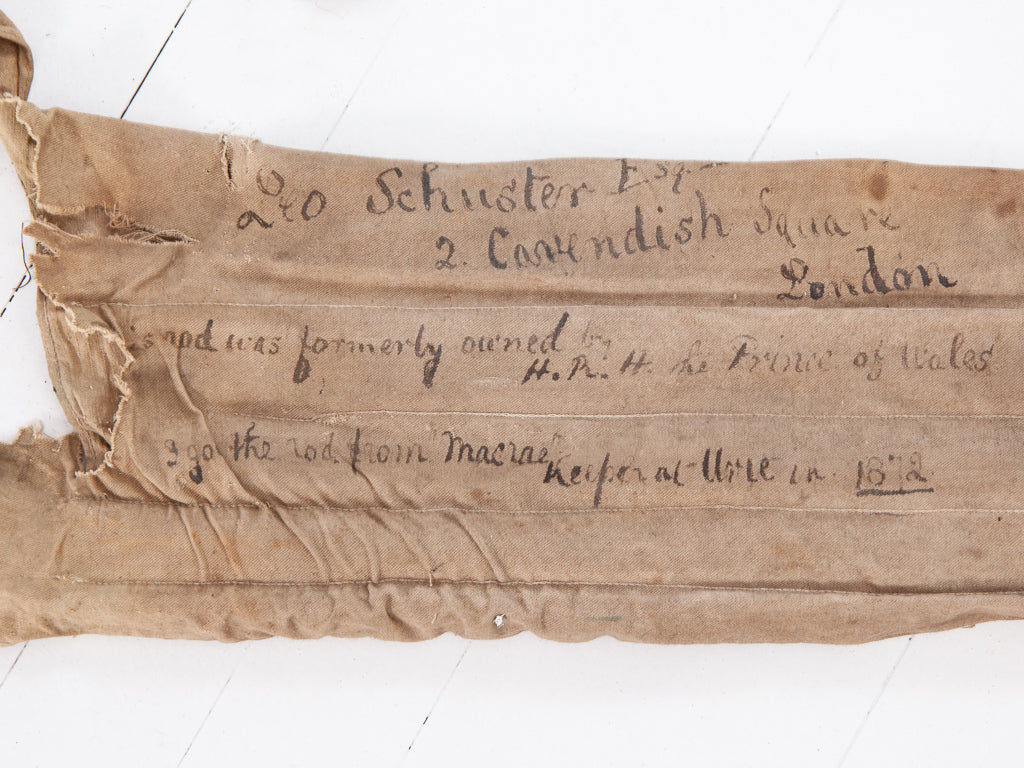 Leo Schuster Esq.
2. Cavendish Square
London
is rod was formerly owned by
H. R. H. he Prince of Wales
I go the rod from Macrae
Keeper at in 1872